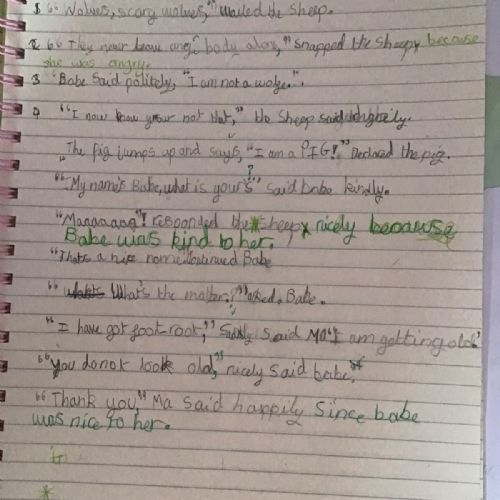 1 "Wolves, scary wolves," wailed the sheep.
2 "They never leave any body alone," snapped the sheep because
she was angry.
3 "Babe said politely, "I am not a wolge.".
4 "I now know your not that," the sheep said
"The pig jumps up and says, "I am a PIG!" Declared the pig.
"My name's Babe, what is yours?" said babe kindly.
"Maaaaaaa"! responded the sheep nicely because
Babe was kind to her.
"Thats a nice name continued Babe
"What's the matter?" asked Babe.
"I have got foot root," said Ma "I am getting old."
"You do not look old," nicely said babe.
"Thank you," Ma said happily since babe
was nice to her.